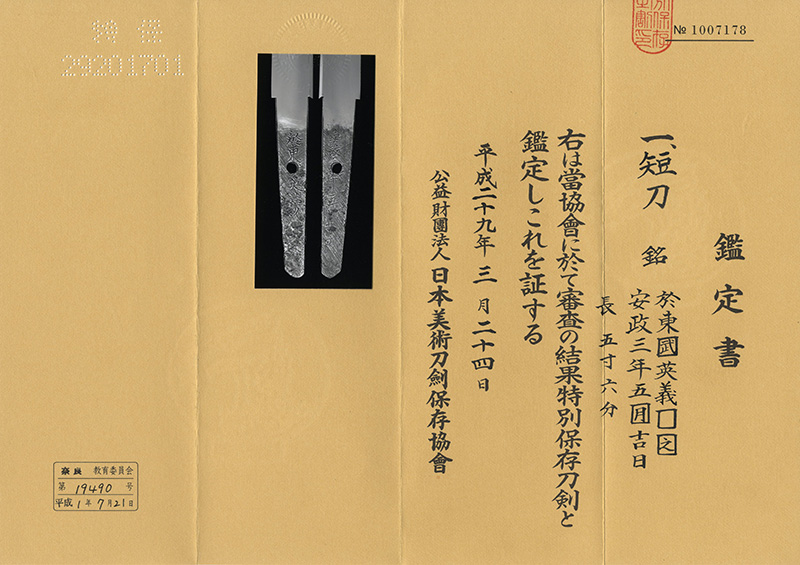 № 1007178
鑑定書
一、短刀 銘 於東國英義囗囚
安政三年五囲吉日
長 五寸六分
右は當協會に於て審査の結果特別保存刀剣と
鑑定しこれを証する
平成二十九年 三 月 二十四 日
公益財團法人 日本美術刀劍保存協會
特保
29201701
奈良 教育委員会
第 19490 号
平成 1 年 7 月 21 日